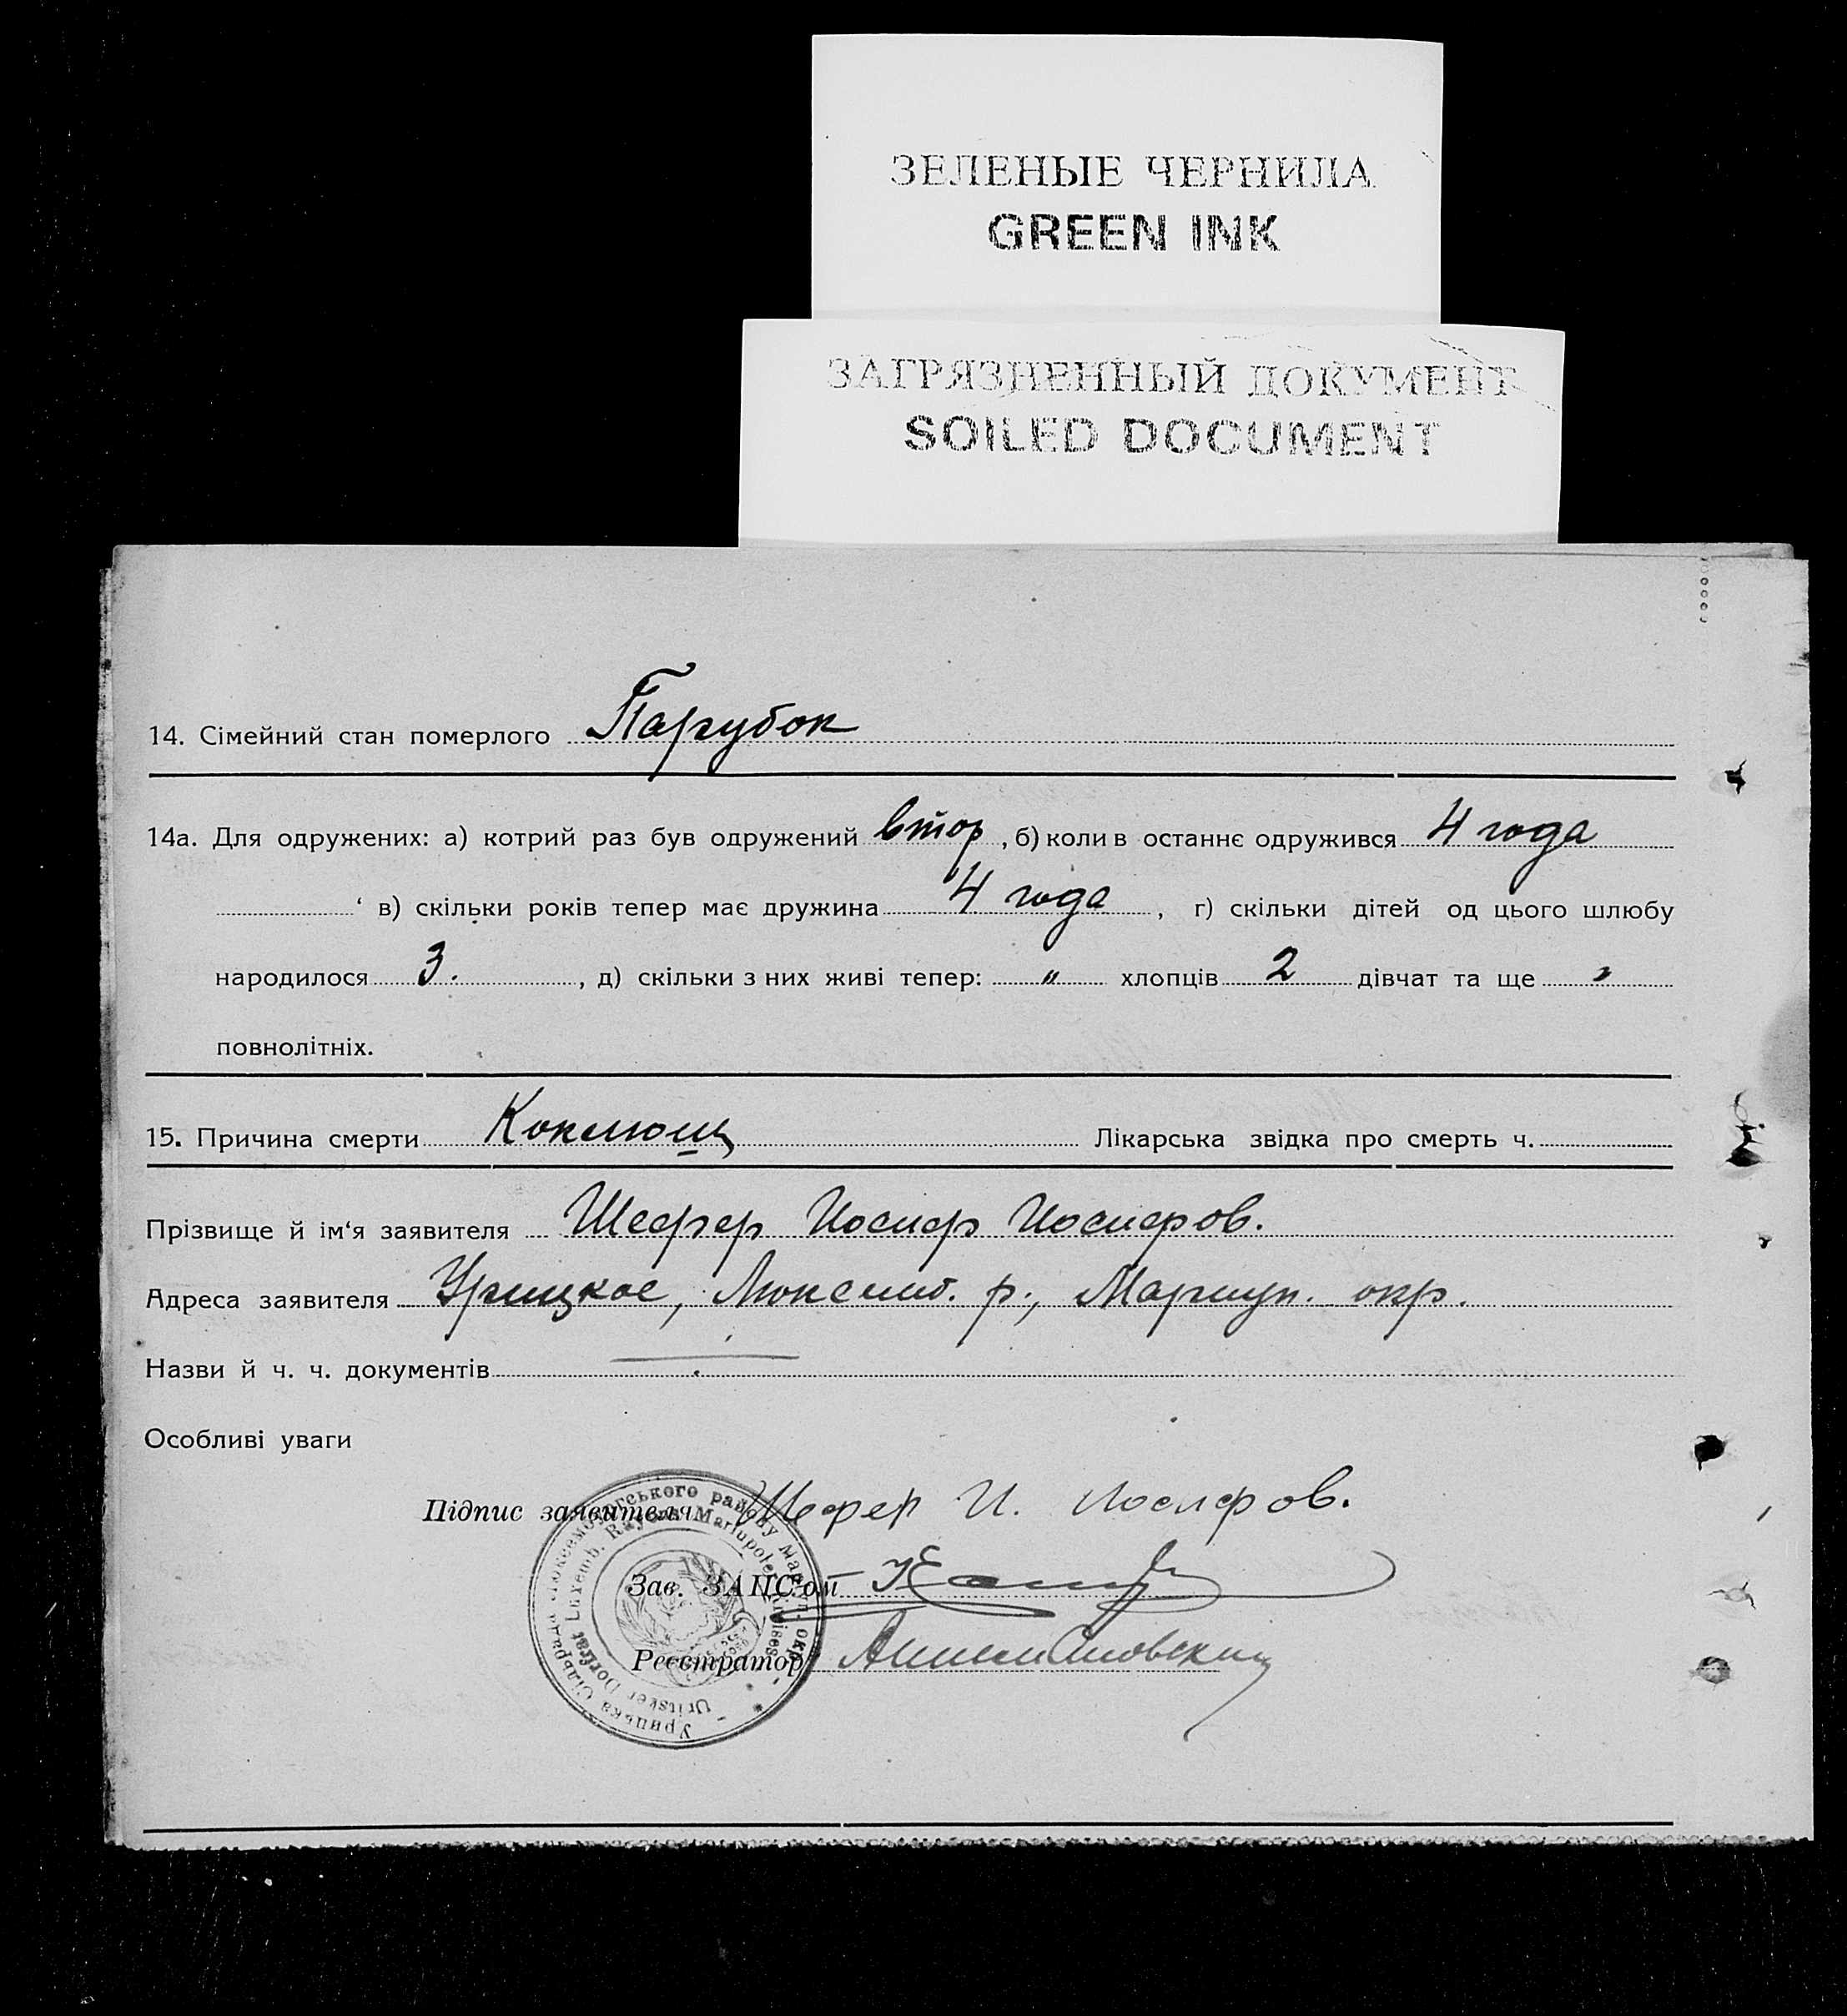 ЗЕЛЕНЫЕ ЧЕРНИЛА
GREEN INK
ЗАГРЯЗНЕННЫЙ ДОКУМЕНТ
SOILED DOCUMENT
14. Сімейний стан померлого Парубок
14а. Для одружених: а) котрий раз був одружений втор, б) коли в останнє одружився 4 года
в) скільки років тепер має дружина 4 года, г) скільки дітей од цього шлюбу
народилося 3., д) скільки з них живі тепер: " хлопців 2 дівчат та ще "
повнолітніх.
15. Причина смерти Коклющ Лікарська звідка про смерть ч.
Прізвище й ім'я заявителя Шефер Иосиф Иосифов.
Адреса заявителя Урицкое, Люксемб. р., Мариуп. окр.
Назви й ч. ч. документів
Особливі уваги
Підпис заявителя Шефер И. Иосифов.
Зав. ЗАПС'ом
Реєстратор
Урицька Сільрада Люксембургського району Маріуп. окр.
Uritsker Dorfrat Luxemb. Rayons Mariupoler Kreises